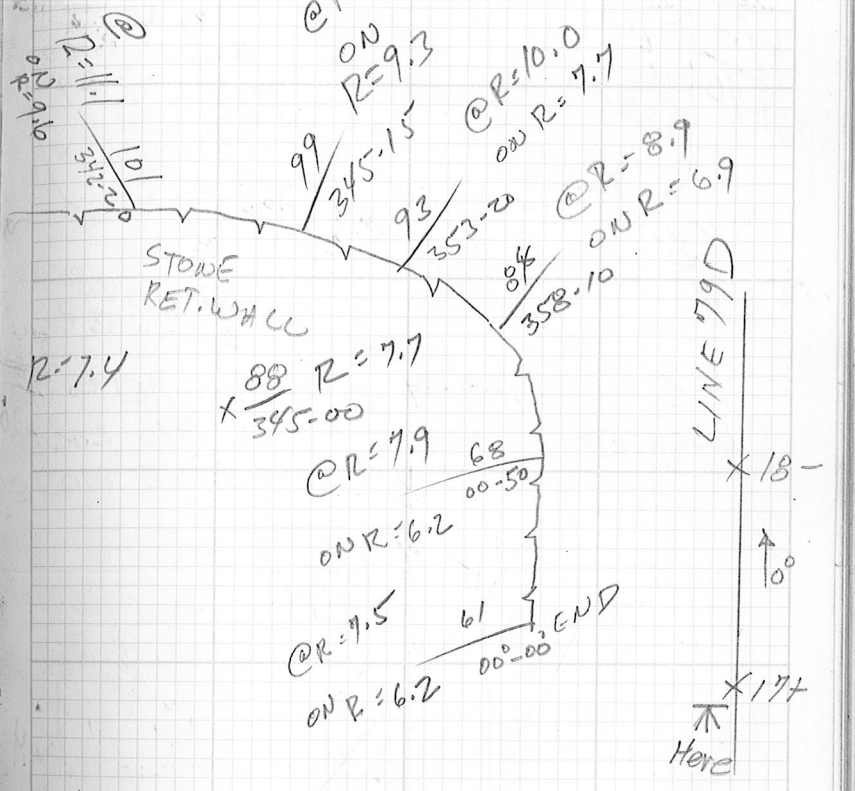 @
R=11.1
ON
R=9.6
101
342-20
@
ON
R=9.3
99
345-15
@R=10.0
ON R=7.7
93
353-20
@R=8.9
ON R=6.9
84
358-10
STONE
RET.WALL
R=7.4
88 R=7.7
X
345-00
@R=7.9
68
00-50
ON R=6.2
@R=7.5
61
00°-00'
END
ON R=6.2
LINE 79D
X 18-
0°
X 17+
Here